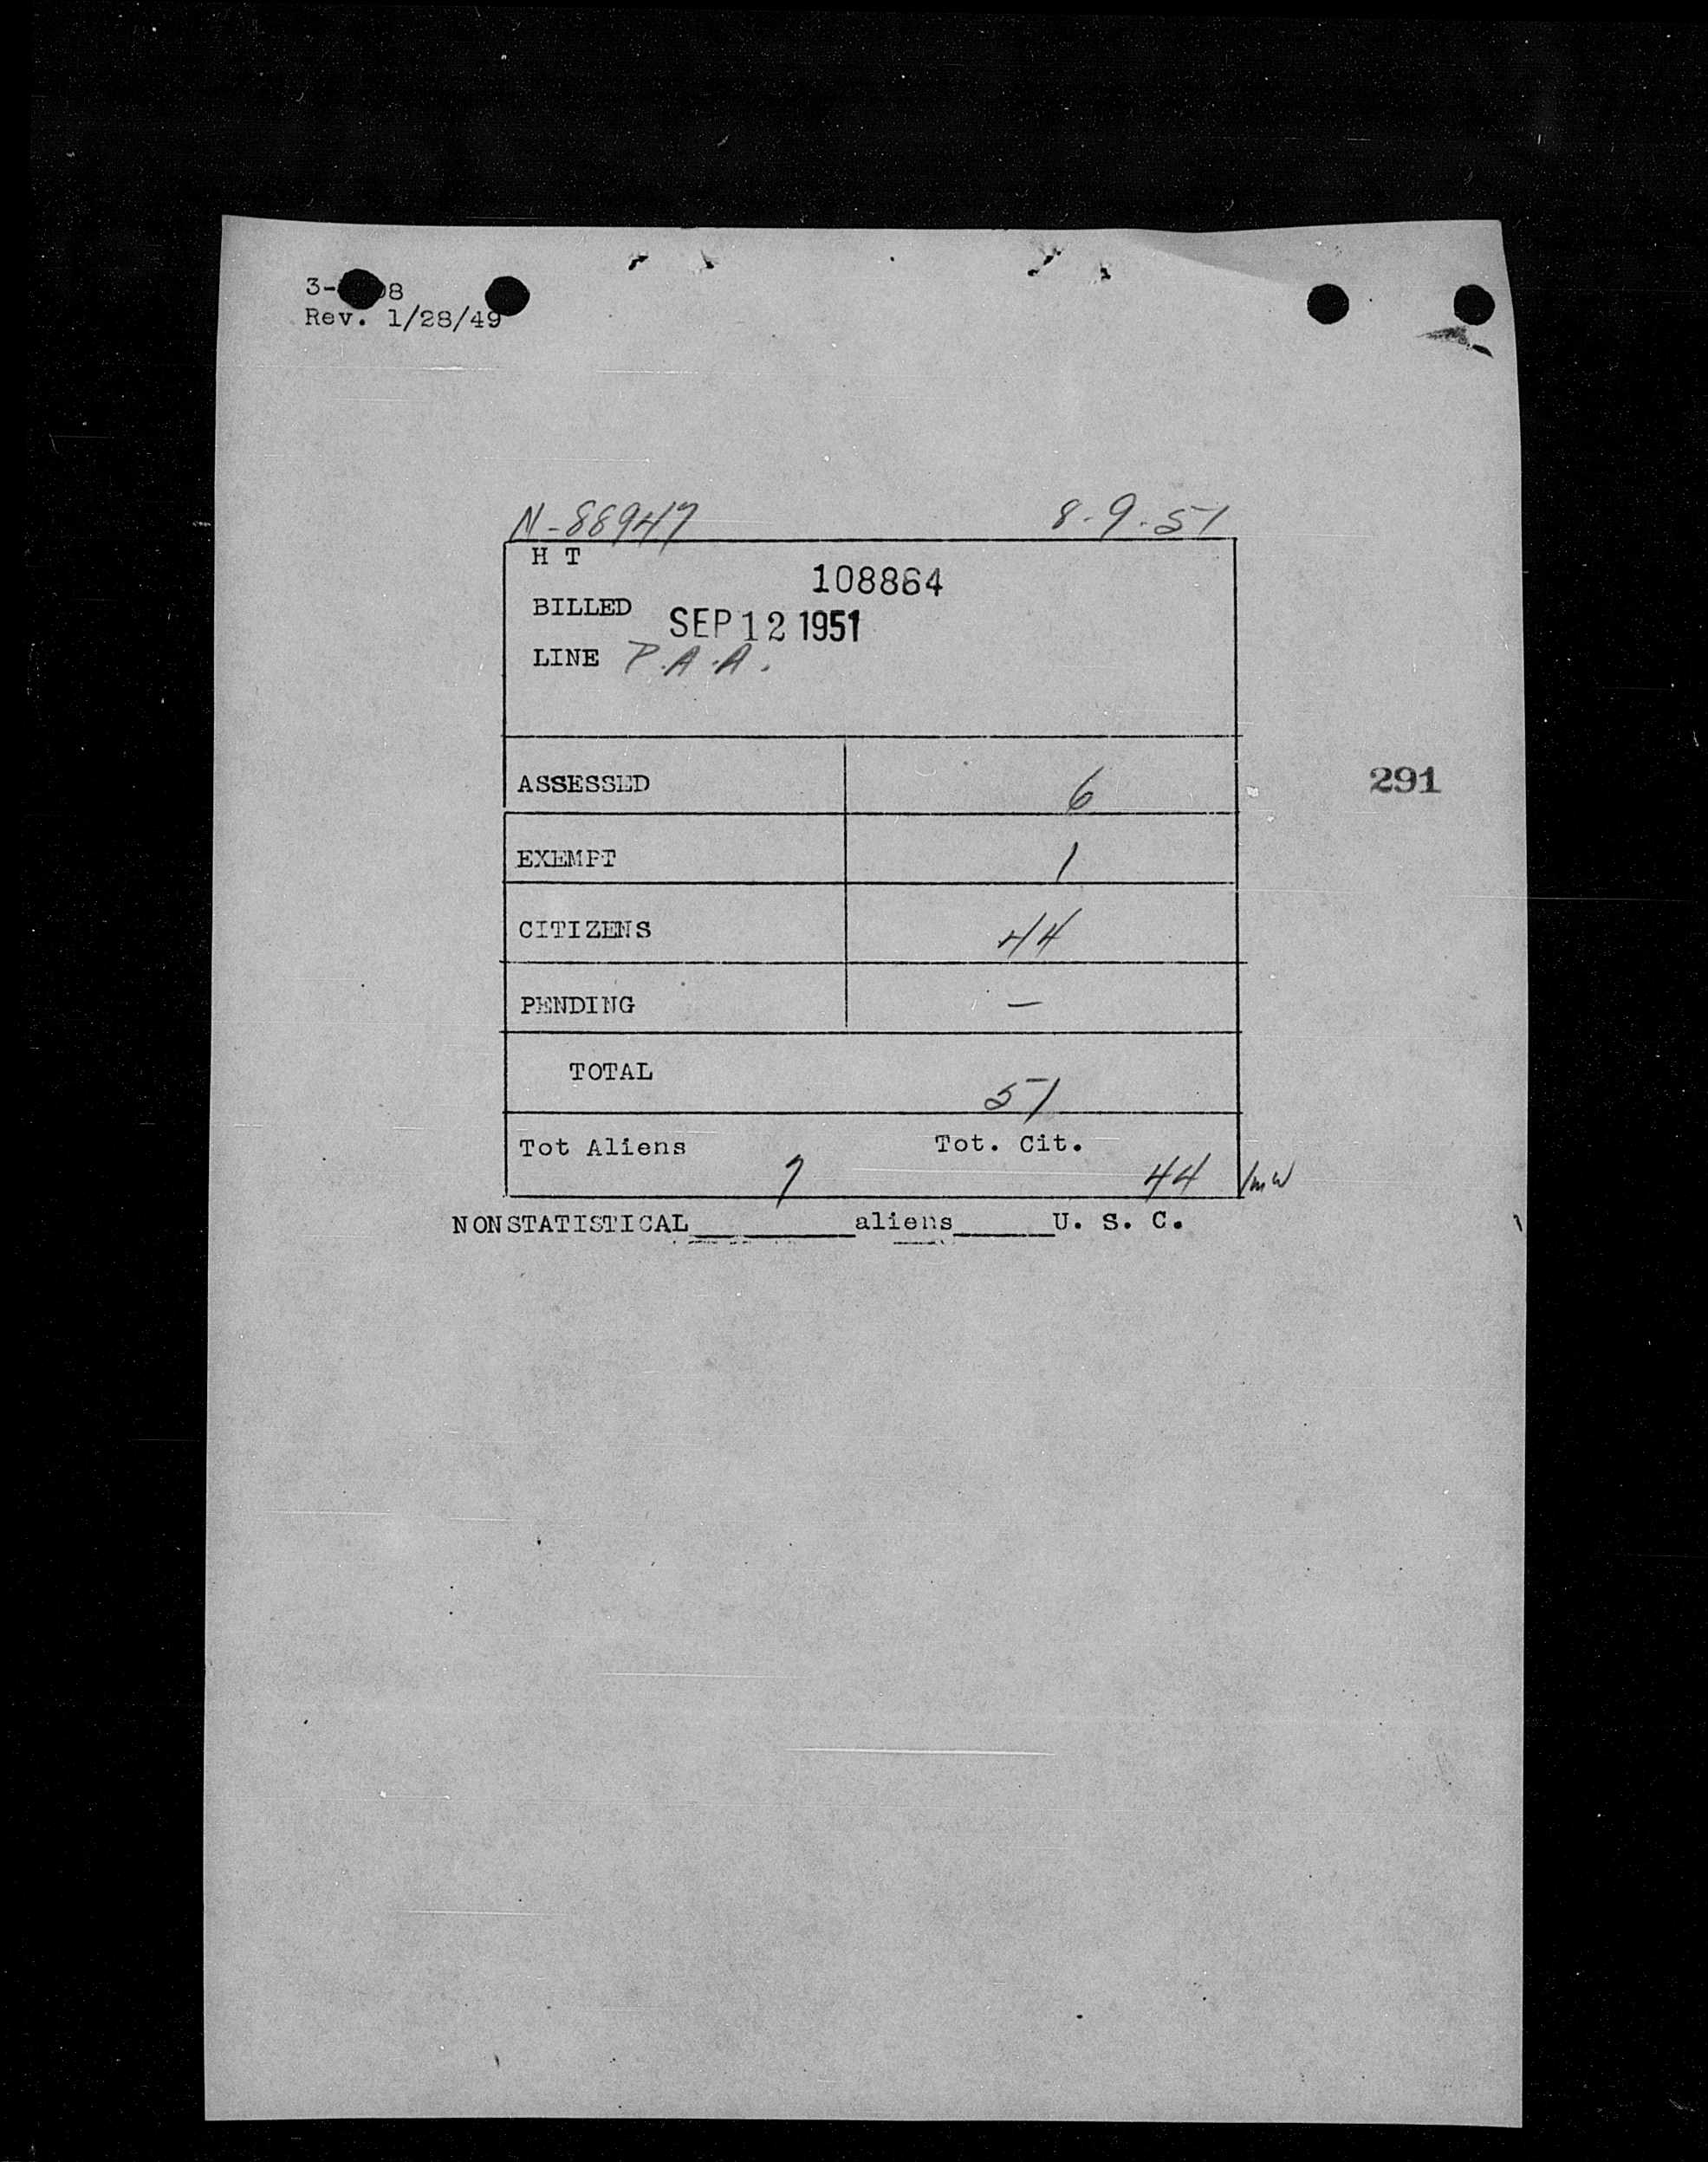 3- 08
Rev. 1/28/49
N-88947 8-9-51
H T
108864
BILLED SEP 12 1951
LINE P.A.A.
ASSESSED 6
291
EXEMPT 1
CITIZENS 44
PENDING —
TOTAL 51
Tot Aliens 7 Tot. Cit. 44 /mw
NONSTATISTICAL________aliens_____U. S. C.